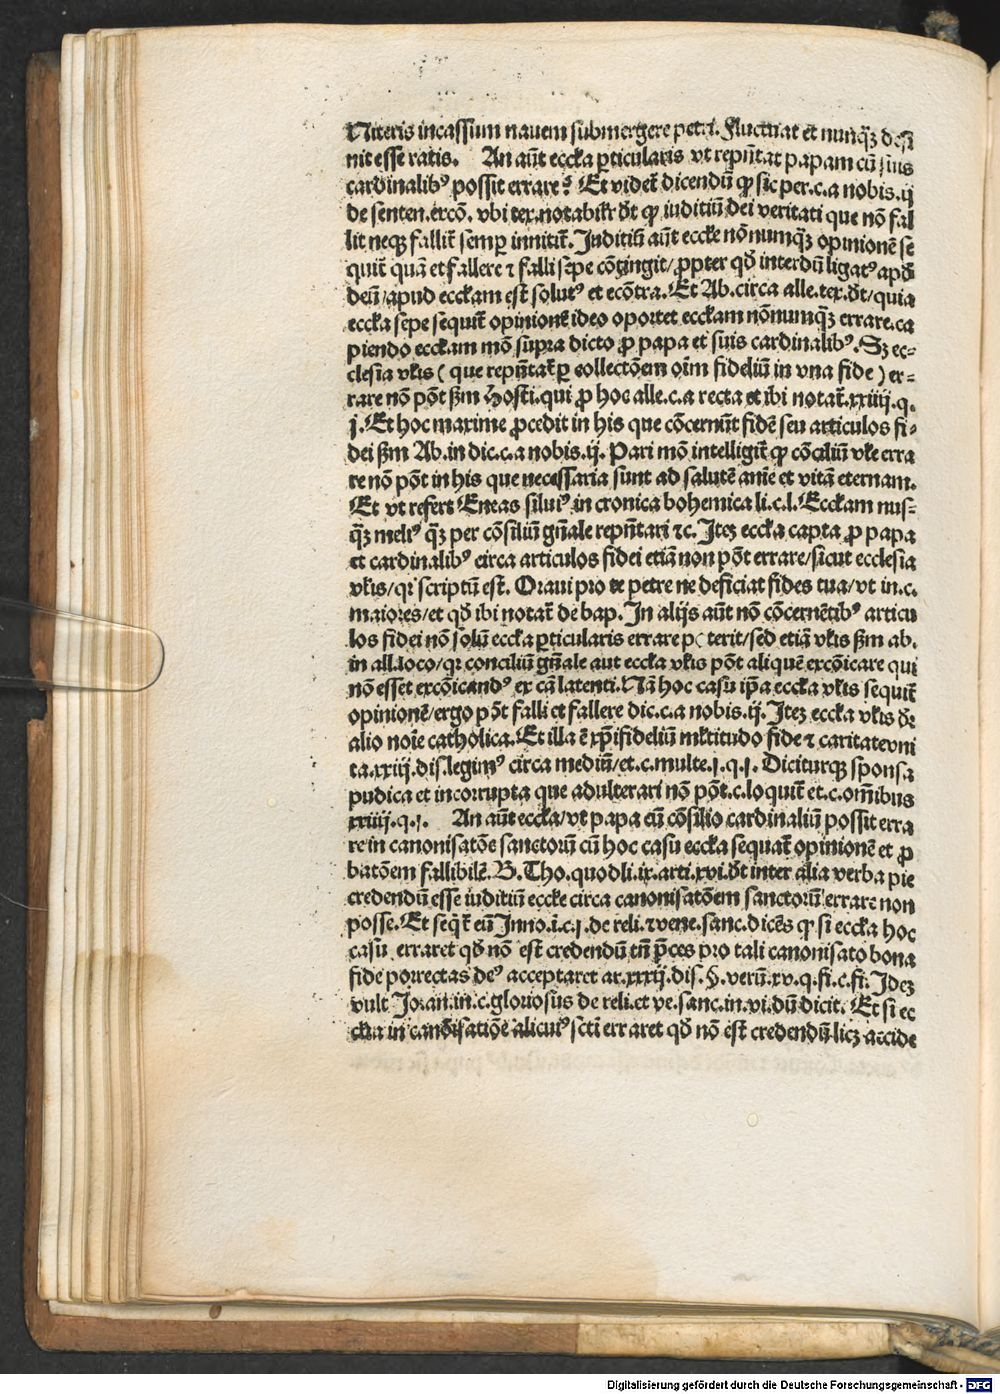 Niteris incassum nauem submergere petri. Fluctuat et nunqȝ desi
nit esse ratis. An aūt eccľa ꝑticularis vt rep̄ntat papam cū suis
cardinalibꝰ possit errare? Et videt᷑ dicendū ꝙ sic per.c.a nobis.ij
de senten.excō. vbi tex.notabiľr dt̄ ꝙ iuditiū dei veritati que nō fal
lit neqȝ fallit᷑ semꝑ innitit᷑. Juditiū aūt eccľie nōnumqȝ opinionē se
quit᷑ quā et fallere ⁊ falli sepe cōtingit/ꝓpter qď interdū ligatꝰ apď
deū/apud eccľam est solutꝰ et ecōtra. Et Ab.circa alle.tex.dt̄/quia
eccľa sepe sequit᷑ opinionē ideo oportet eccľam nōnumqȝ errare.ca
piendo eccľam mō supra dicto ꝓ papa et suis cardinalibꝰ. Sȝ ec-
clesia vľis ( que rep̄ntat᷑ ꝑ collectōem oīm fideliū in vna fide ) er-
rare nō pōt ßm Hosti.qui ꝓ hoc alle.c.a recta et ibi notat᷑.xxiiij.q.
j. Et hoc maxime ꝓcedit in his que cōcernūt fidē seu articulos fi-
dei ßm Ab.in dic.c.a nobis.ij. Pari mō intelligit᷑ ꝙ cōciliū vľe erra
re nō pōt in his que necessaria sunt ad salutē anīe et vitā eternam.
Et vt refert Eneas siluiꝰ in cronica bohemica li.c.l. Eccľam nus-
qȝ meliꝰ qȝ per cōsiliū gn̄ale rep̄ntari ⁊c. Iteȝ eccľa capta ꝓ papa
et cardinalibꝰ circa articulos fidei etiā non pōt errare/sicut ecclesia
vľis/qꝛ scriptū est. Oraui pro te petre ne deficiat fides tua/vt in.c.
maiores/et qď ibi notat᷑ de bap. In alijs aūt nō cōcernētibꝰ articu
los fidei nō solū eccľa ꝑticularis errare poterit/sed etiā vľis ßm ab.
in all.loco/qꝛ conciliū gn̄ale aut eccľa vľis pōt aliquē excōicare qui
nō esset excōicandꝰ ex cā latenti. Nā hoc casu ip̄a eccľa vľis sequit᷑
opinionē/ergo pōt falli et fallere dic.c.a nobis.ij. Iteȝ eccľa vľis dꝛ
alio noīe catholica. Et illa ē xp̄ifidelium mľtitudo fide ⁊ caritate vni
ta.xxiij.dis.legimꝰ circa mediū/et.c.multe.j.q.j. Diciturqȝ sponsa
pudica et incorrupta que adulterari nō pōt.c.loquit᷑ et.c.om̄ibus
xxiiij.q.j. An aūt eccľa/vt papa cū cōsilio cardinaliū possit erra
re in canonisatōe sanctorū cū hoc casu eccľa sequat᷑ opinionē et ꝓ
batōem fallibilē. B. Tho.quodli.ix.arti.xvi.dt̄ inter alia verba pie
credendū esse iuditiū eccľe circa canonisatōem sanctorū errare non
posse. Et seqt᷑ eū Inno.i.c.j.de reli.⁊ vene.sanc.dicēs ꝙ si eccľa hoc
casu erraret qď nō est credendū tn̄ p̄ces pro tali canonisato bona
fide porrectas deꝰ acceptaret ar.xxxij.dis.§.verū.xv.q.fi.c.fi. Ideȝ
vult Jo.an.in.c.gloriosus de reli.et ve.sanc.in.vi.dū dicit. Et si ec
cľia in canōisatiōe alicuiꝰ scti erraret qď nō est credendū licȝ accide
Digitalisierung gefördert durch die Deutsche Forschungsgemeinschaft - DFG